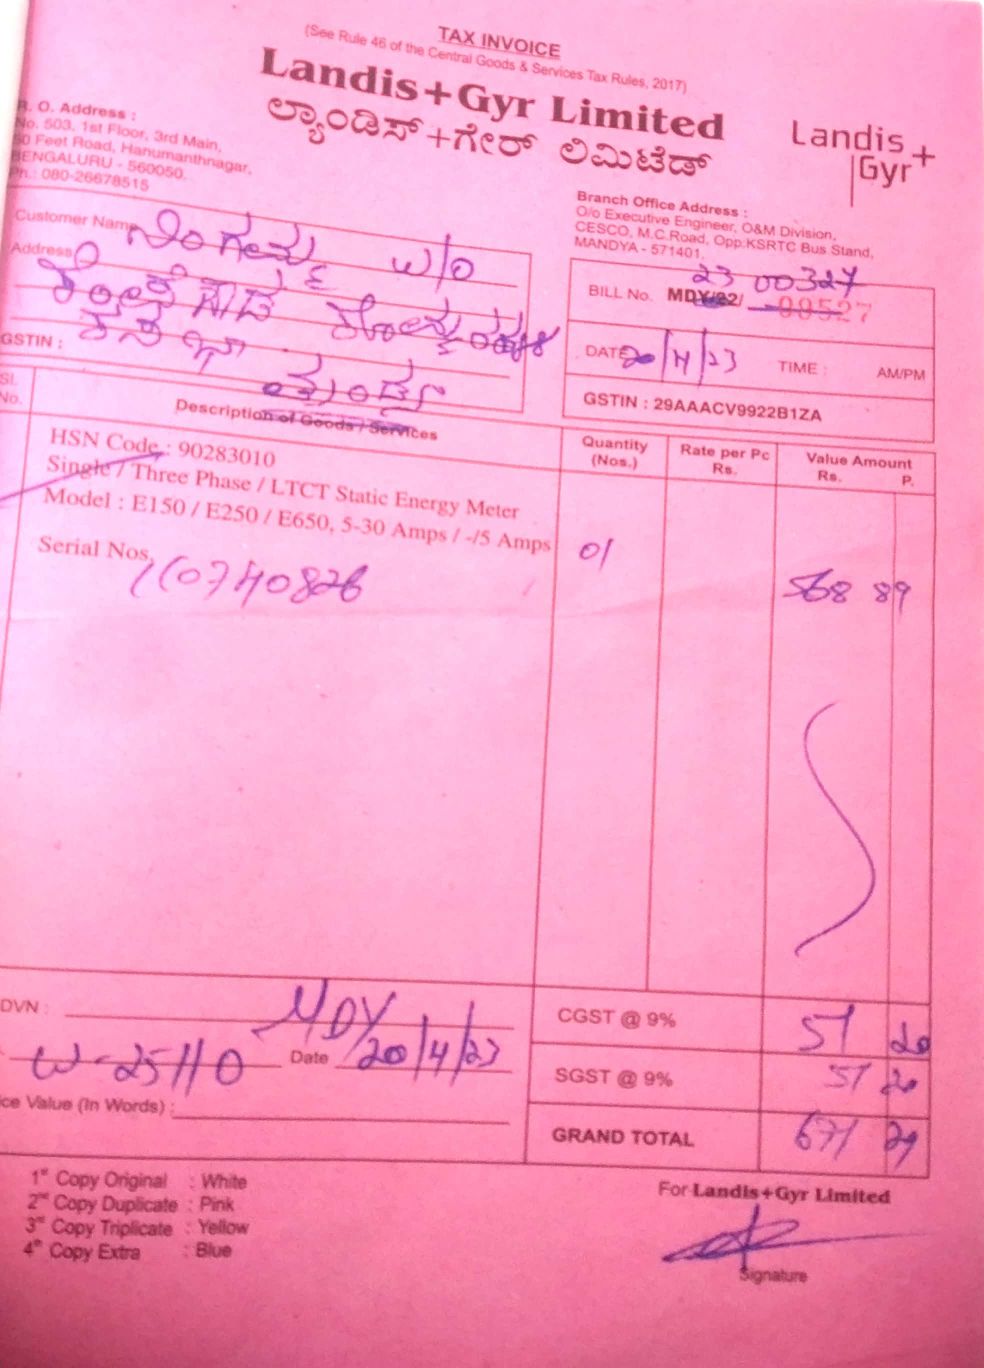 TAX INVOICE
(See Rule 46 of the Central Goods & Services Tax Rules, 2017)
Landis+Gyr Limited
ಲ್ಯಾಂಡಿಸ್+ಗೇರ್ ಲಿಮಿಟೆಡ್
Landis+Gyr
R. O. Address :
No. 503, 1st Floor, 3rd Main,
50 Feet Road, Hanumanthnagar,
BENGALURU - 560050.
Ph.: 080-26678515
Branch Office Address :
O/o Executive Engineer, O&M Division,
CESCO, M.C.Road, Opp.KSRTC Bus Stand,
MANDYA - 571401.
Customer Name W/O
Address
ಮಂಡ್ಯ
GSTIN :
23 00327
BILL No. MDY/22/ 00527
DATE 20/4/23 TIME : AM/PM
GSTIN : 29AAACV9922B1ZA
Sl. No. Description of Goods / Services Quantity (Nos.) Rate per Pc Rs. Value Amount Rs. P.
HSN Code : 90283010
Single / Three Phase / LTCT Static Energy Meter
Model : E150 / E250 / E650, 5-30 Amps / -/5 Amps 01
Serial Nos. 568 89
DVN : MDY
W-25110 Date 20/4/23
ice Value (In Words) :
CGST @ 9% 51 20
SGST @ 9% 51 20
GRAND TOTAL 671 29
1st Copy Original : White
2nd Copy Duplicate : Pink
3rd Copy Triplicate : Yellow
4th Copy Extra : Blue
For Landis+Gyr Limited
Signature